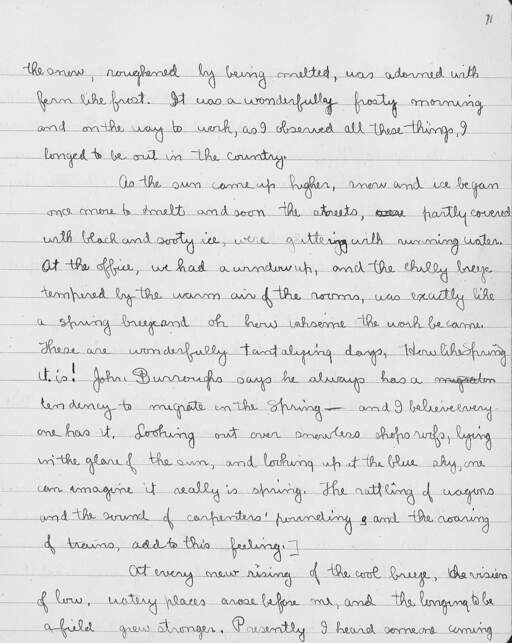 71
the snow, roughened by being melted, was adorned with
fern like frost. It was a wonderfully frosty morning
and on the way to work, as I observed all these things, I
longed to be out in the country.
As the sun came up higher, snow and ice began
once more to melt and soon the streets, were partly covered
with black and sooty ice, were glittering with running water.
At the office, we had a window up, and the chilly breeze
tempered by the warm air of the rooms, was exactly like
a spring breeze and oh how irksome the work became.
These are wonderfully tantalizing days, How like Spring
it is! John Burroughs says he always has a migration
tendency to migrate in the Spring — and I believe every
one has it. Looking out over snowless shops roofs, lying
in the glare of the sun, and looking up at the blue sky, one
can imagine it really is spring. The rattling of wagons
and the sound of carpenters' pounding and the roaring
of trains, add to this feeling.]
At every new rising of the cool breeze, the vision
of low, watery places arose before me, and the longing to be
afield grew stronger. Presently I heard someone coming